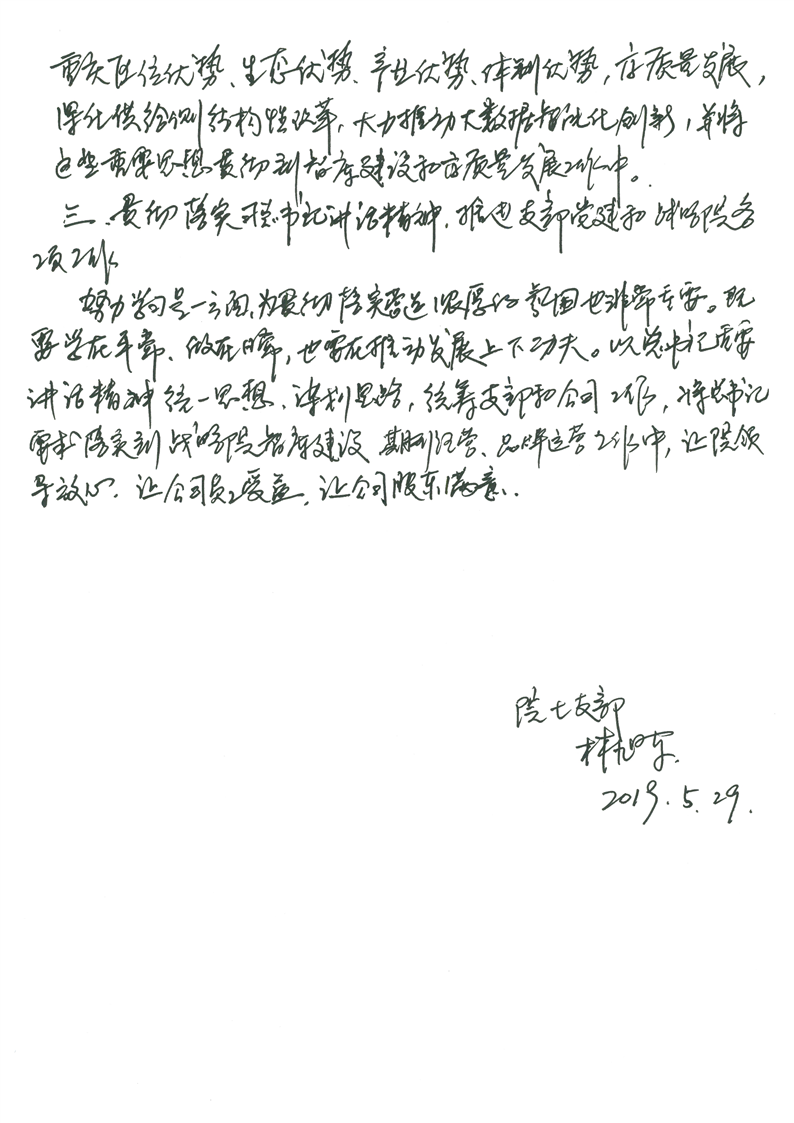 重庆区位优势、生态优势、产业优势、体制优势,高质量发展,
深化供给侧结构性改革,大力推动大数据智能化创新,并将
这些重要思想贯彻到智库建设和高质量发展工作中。
三、贯彻落实总书记讲话精神,推进支部党建和战略院各
项工作
努力学习是一方面,为贯彻落实营造浓厚的氛围也非常重要。既
要学在平常、做在日常,也要在推动发展上下功夫。以总书记重要
讲话精神统一思想、谋划思路,统筹支部和公司工作,将总书记
要求落实到战略院智库建设、期刊经营、品牌运营工作中,让院领
导放心、让公司员工受益,让公司股东满意。
院七支部
林旭东
2019.5.29.